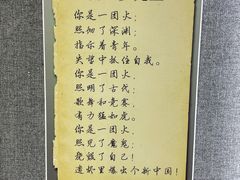 你是一团火；
照彻了深渊；
指示着青年，
失望中抓住自我。
你是一团火；
照明了古代；
歌舞和竞赛，
有力猛如虎。
你是一团火；
照见了魔鬼；
烧毁了自己！
遗烬里爆出个新中国！